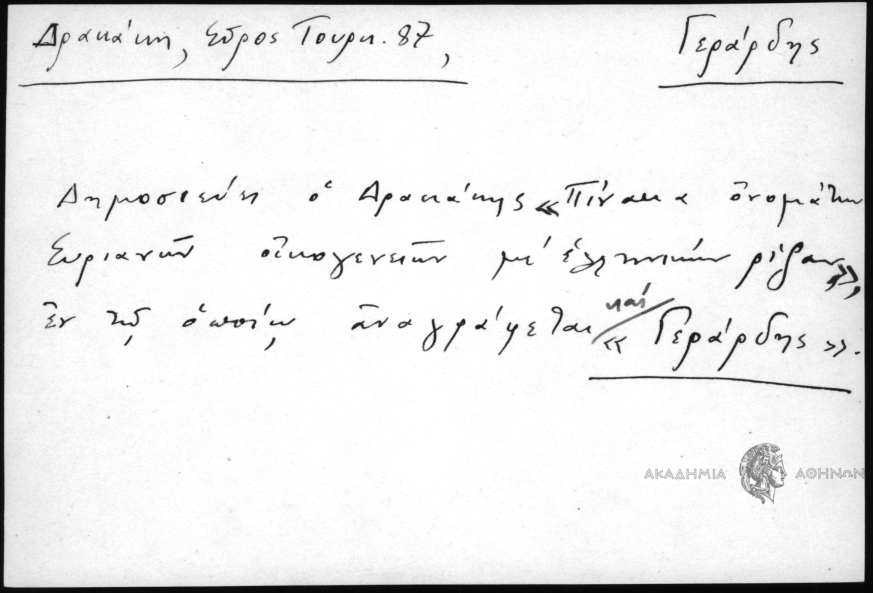 Δρακάκη, Σῦρος Τουρκ. 87,
Γεράρδης
Δημοσιεύει ὁ Δρακάκης «Πίνακα ὀνομάτων
Συριανῶν οἰκογενειῶν μὲ ἑλληνικὴν ρίζαν»,
ἐν τῷ ὁποίῳ ἀναγράφεται καὶ «Γεράρδης».
ΑΚΑΔΗΜΙΑ ΑΘΗΝΩΝ